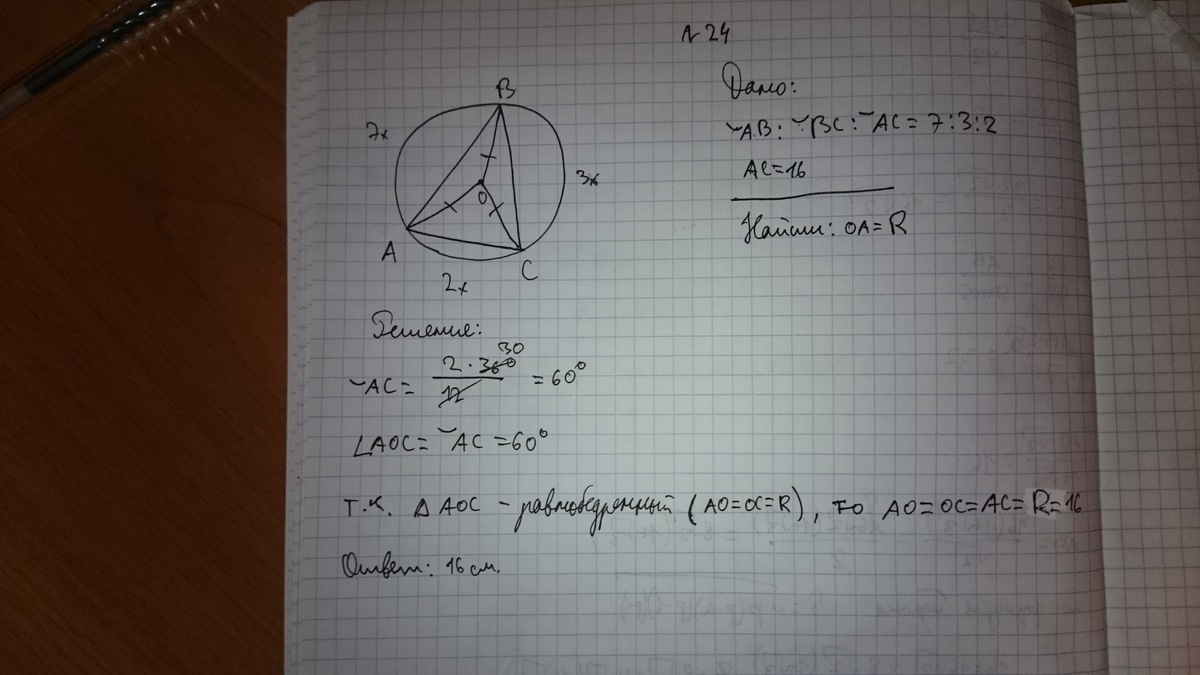 № 24
B
Дано:
7x
◡AB : ◡BC : ◡AC = 7:3:2
AC=16
3x
O
Найти: OA = R
A
C
2x
Решение:
◡AC = 2 · 360 30 / 12 = 60°
∠AOC = ◡AC = 60°
Т.к. △ AOC – равнобедренный (AO=OC=R), то AO=OC=AC=R=16
Ответ: 16 см.